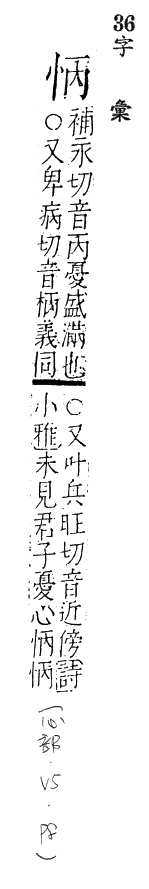 36字彙
怲
補永切音丙憂盛滿也
○又卑病切音柄義同
○又叶兵旺切音近傍詩
小雅未見君子憂心怲怲
(心部.V5.P8)